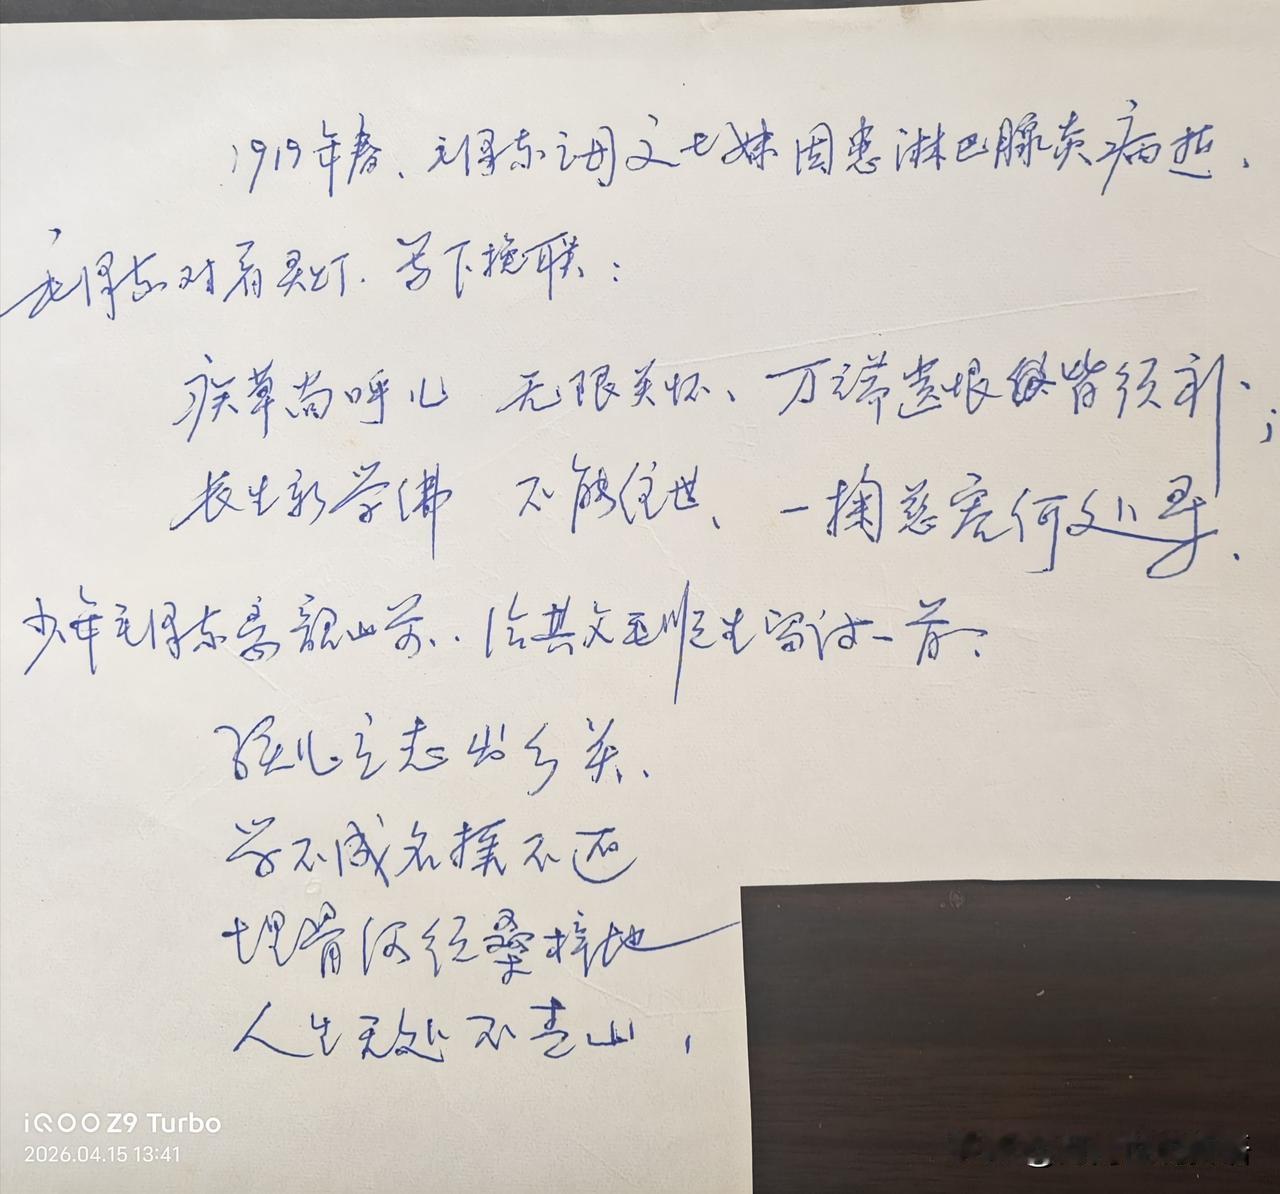 1919年春、毛泽东之母文七妹因患淋巴腺炎病逝、
毛泽东对着灵灯、写下挽联：
疾革尚呼儿 无限关怀、万端遗恨皆须补、；
长生新学佛 不能住世、一掬慈容何处寻.
少年毛泽东离韶山前、给其父毛顺生留诗一首：
孩儿立志出乡关、
学不成名誓不还
埋骨何须桑梓地
人生无处不青山，
iQOO Z9 Turbo
2026.04.15 13:41